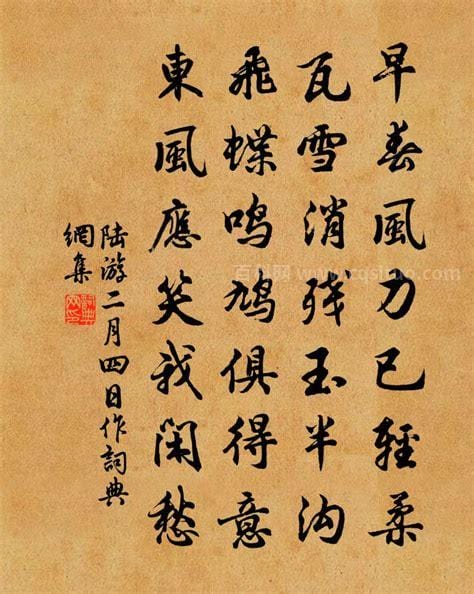 早春風力已輕柔
瓦雪消殘玉半沟
飛蝶鳴鳩俱得意
東風應笑我閑愁
陆游二月四日作詞典
網集
百科网 www.cqsltao.com